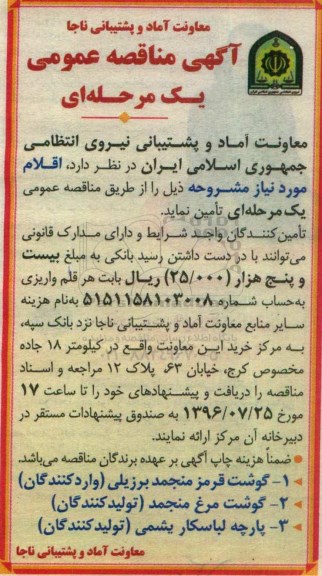 معاونت آماد و پشتیبانی ناجا
آگهی مناقصه عمومی
یک مرحله‌ای
معاونت آماد و پشتیبانی نیروی انتظامی
جمهوری اسلامی ایران در نظر دارد، اقلام
مورد نیاز مشروحه ذیل را از طریق مناقصه عمومی
یک مرحله‌ای تأمین نماید.
تأمین کنندگان واجد شرایط و دارای مدارک قانونی
می‌توانند با در دست داشتن رسید بانکی به مبلغ بیست
و پنج هزار (۲۵/۰۰۰) ریال بابت هر قلم واریزی
به‌حساب شماره ۵۱۵۱۱۵۸۱۰۳۰۰۸ به‌نام هزینه
سایر منابع معاونت آماد و پشتیبانی ناجا نزد بانک سپه،
به مرکز خرید این معاونت واقع در کیلومتر ۱۸ جاده
مخصوص کرج، خیابان ۶۳، پلاک ۱۲ مراجعه و اسناد
مناقصه را دریافت و پیشنهادهای خود را تا ساعت ۱۷
مورخ ۱۳۹۶/۰۷/۲۵ به صندوق پیشنهادات مستقر در
دبیرخانه آن مرکز ارائه نمایند.
ضمناً هزینه چاپ آگهی بر عهده برندگان مناقصه می‌باشد.
۱- گوشت قرمز منجمد برزیلی (واردکنندگان)
۲- گوشت مرغ منجمد (تولیدکنندگان)
۳- پارچه لباسکار یشمی (تولیدکنندگان)
معاونت آماد و پشتیبانی ناجا